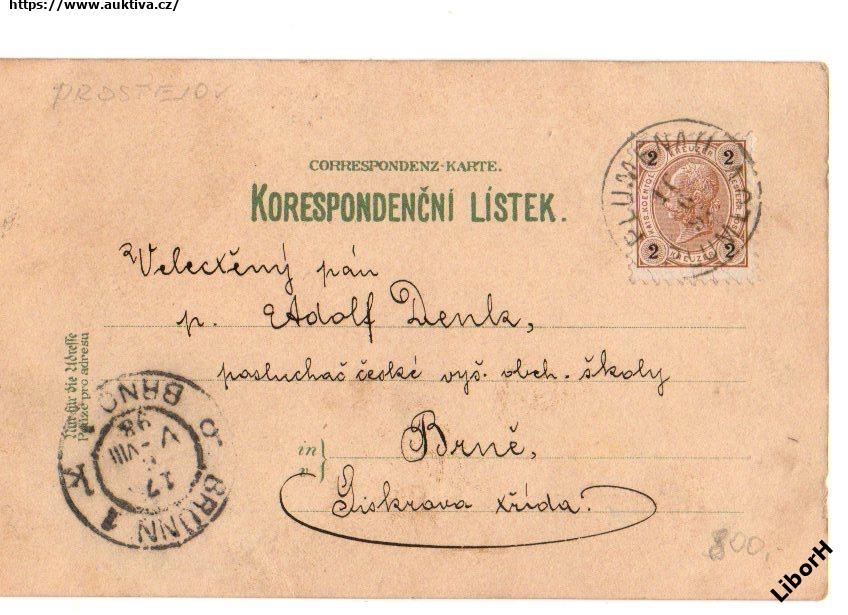 https://www.auktiva.cz/
PROSTEJOV
CORRESPONDENZ-KARTE.
KORESPONDENČNÍ LÍSTEK.
2 KREUZER 2
2 KREUZER 2
PLUMENAU
PLUMLOV
Velectěný pán
p. Adolf Denk,
posluchač české vyš. obch. školy
in
v
Brně,
Giskrova třída.
Nur für die Adresse
Pouze pro adresu
BRÜNN 1 BRNO
17 VIII 98
K
800,-
LiborH